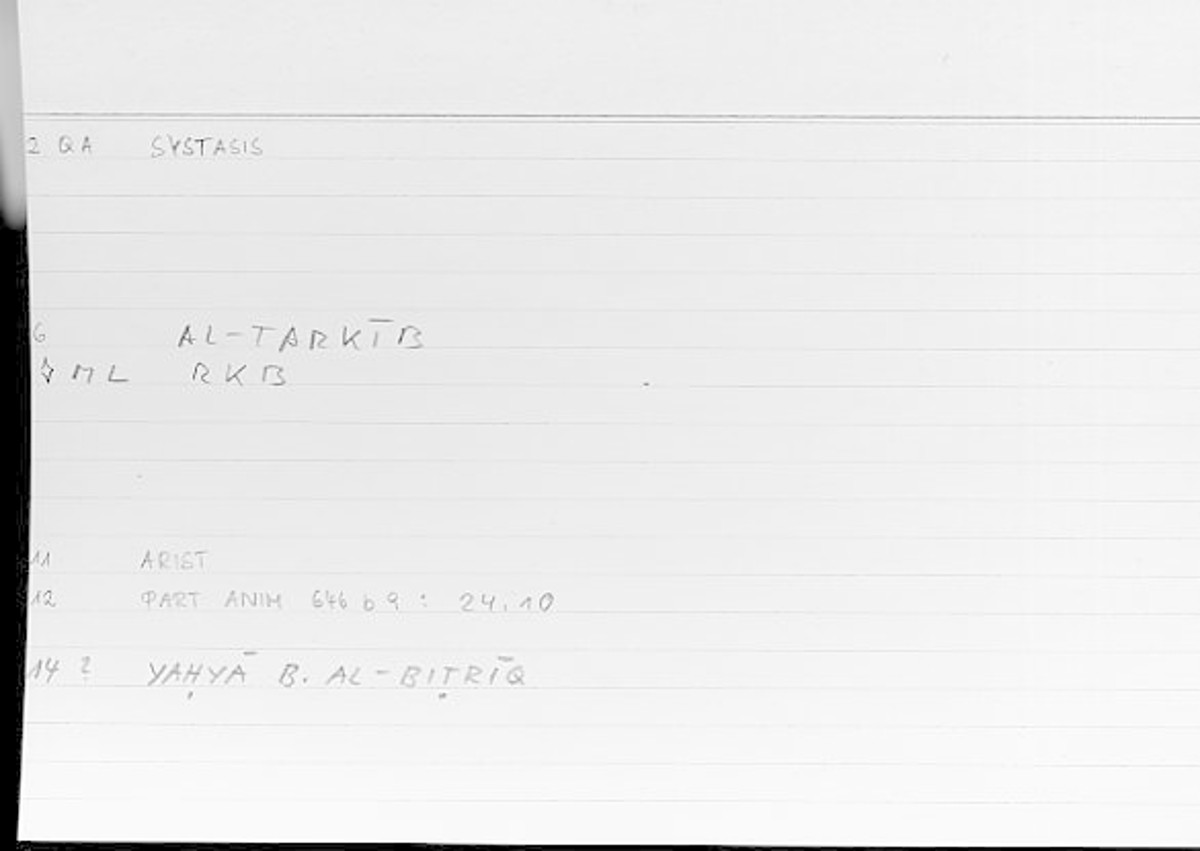 2 QA SYSTASIS
6 AL-TARKĪB
ML RKB
11 ARIST
12 PART ANIM 646 b 9 : 24.10
14 ? YAḤYĀ B. AL-BIṬRĪQ